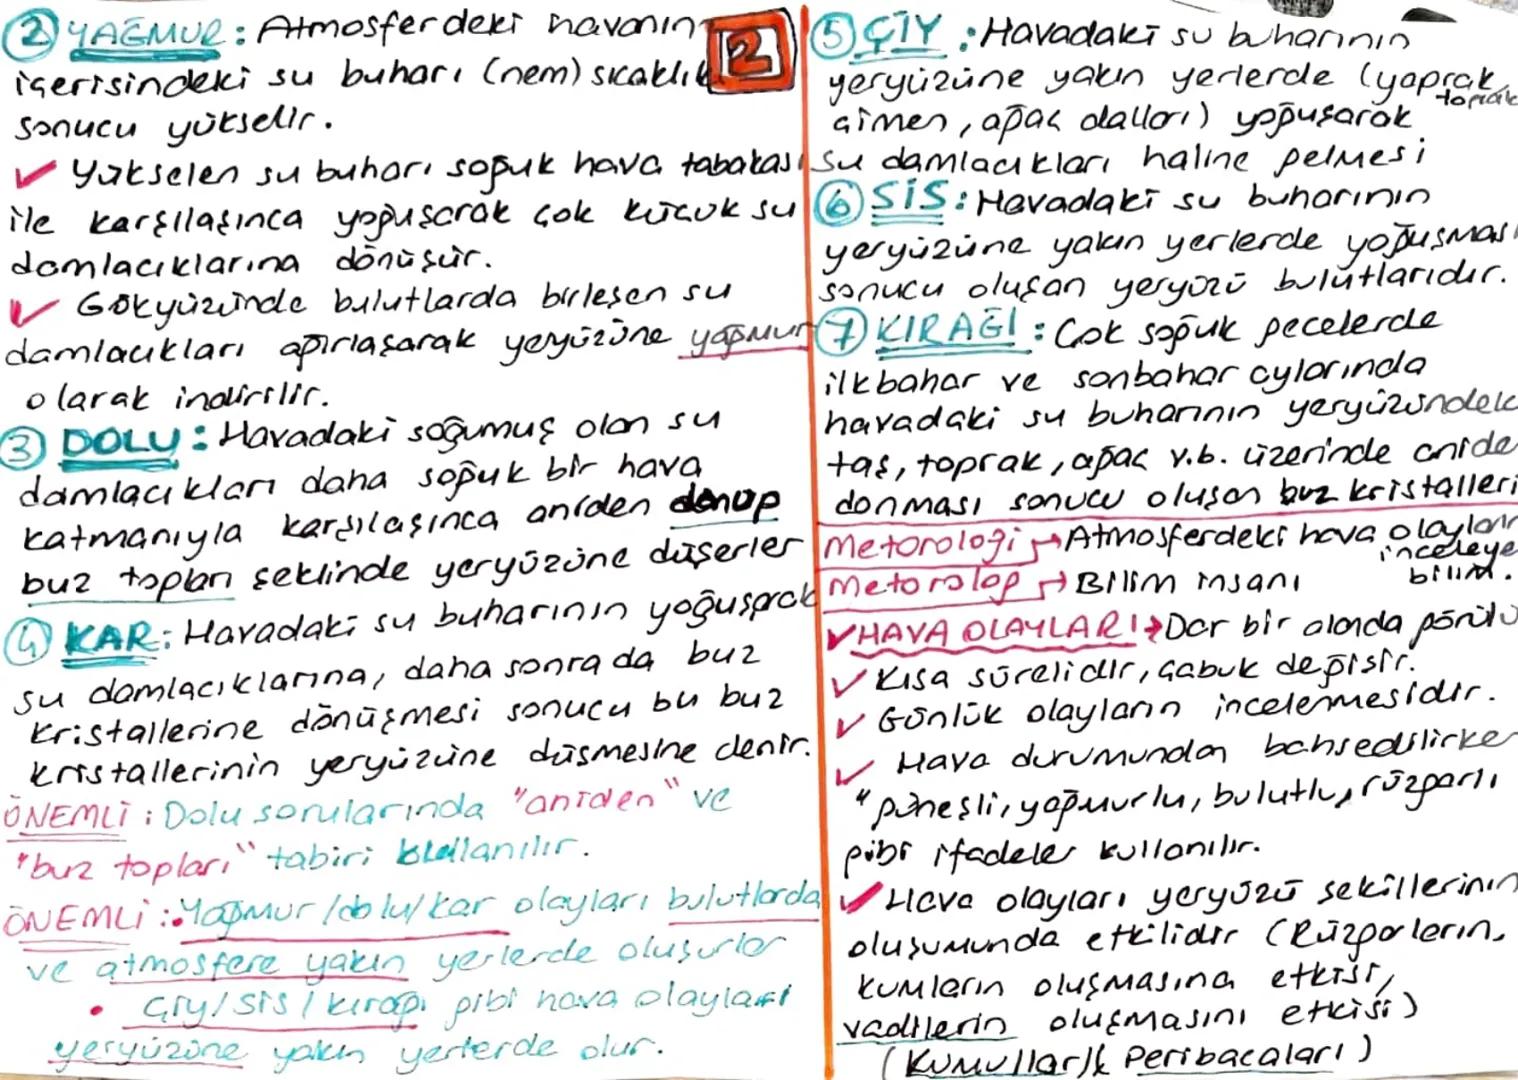 2 YAĞMUR: Atmosferdeki havanın
içerisindeki su buharı (nem) sıcaklık
sonucu yükselir.
✓ Yükselen su buharı soğuk hava tabakası
ile karşılaşınca yoğuşarak çok küçük su
damlacıklarına dönüşür.
✓ Gökyüzünde bulutlarda birleşen su
damlacıkları ağırlaşarak yeryüzüne yağmur
olarak indirilir.
3 DOLU: Havadaki soğumuş olan su
damlacıkları daha soğuk bir hava
katmanıyla karşılaşınca aniden donup
buz topları şeklinde yeryüzüne düşerler
4 KAR: Havadaki su buharının yoğuşarak
su damlacıklarına, daha sonra da buz
kristallerine dönüşmesi sonucu bu buz
kristallerinin yeryüzüne düşmesine denir.
ÖNEMLİ: Dolu sorularında "aniden" ve
"buz topları" tabiri kullanılır.
ÖNEMLİ: • Yağmur/dolu/kar olayları bulutlarda
ve atmosfere yakın yerlerde oluşurlar
• Çiy/Sis/kırağı gibi hava olayları
yeryüzüne yakın yerlerde olur.
2
5 ÇİY: Havadaki su buharının
yeryüzüne yakın yerlerde (yaprak,
toprak
çimen, ağaç dalları) yoğuşarak
su damlacıkları haline gelmesi
6 SİS: Havadaki su buharının
yeryüzüne yakın yerlerde yoğuşması
sonucu oluşan yeryüzü bulutlarıdır.
7 KIRAĞI: Çok soğuk gecelerde
ilkbahar ve sonbahar aylarında
havadaki su buharının yeryüzündek
taş, toprak, ağaç v.b. üzerinde anide
donması sonucu oluşan buz kristalleri
Metoroloji → Atmosferdeki hava olayları
inceleye
bilim.
Metorolog → Bilim insanı
✓ HAVA OLAYLARI → Dar bir alanda görülü
✓ Kısa sürelidir, çabuk değişir.
✓ Günlük olayların incelenmesidir.
✓ Hava durumundan bahsedilirke
"güneşli, yağmurlu, bulutlu, rüzgarlı
gibi ifadeler kullanılır.
✓ Hava olayları yeryüzü şekillerinin
oluşumunda etkilidir (Rüzgarların,
kumların oluşmasına etkisi,
vadilerin oluşmasını etkisi)
(Kumullar) (Peribacaları)